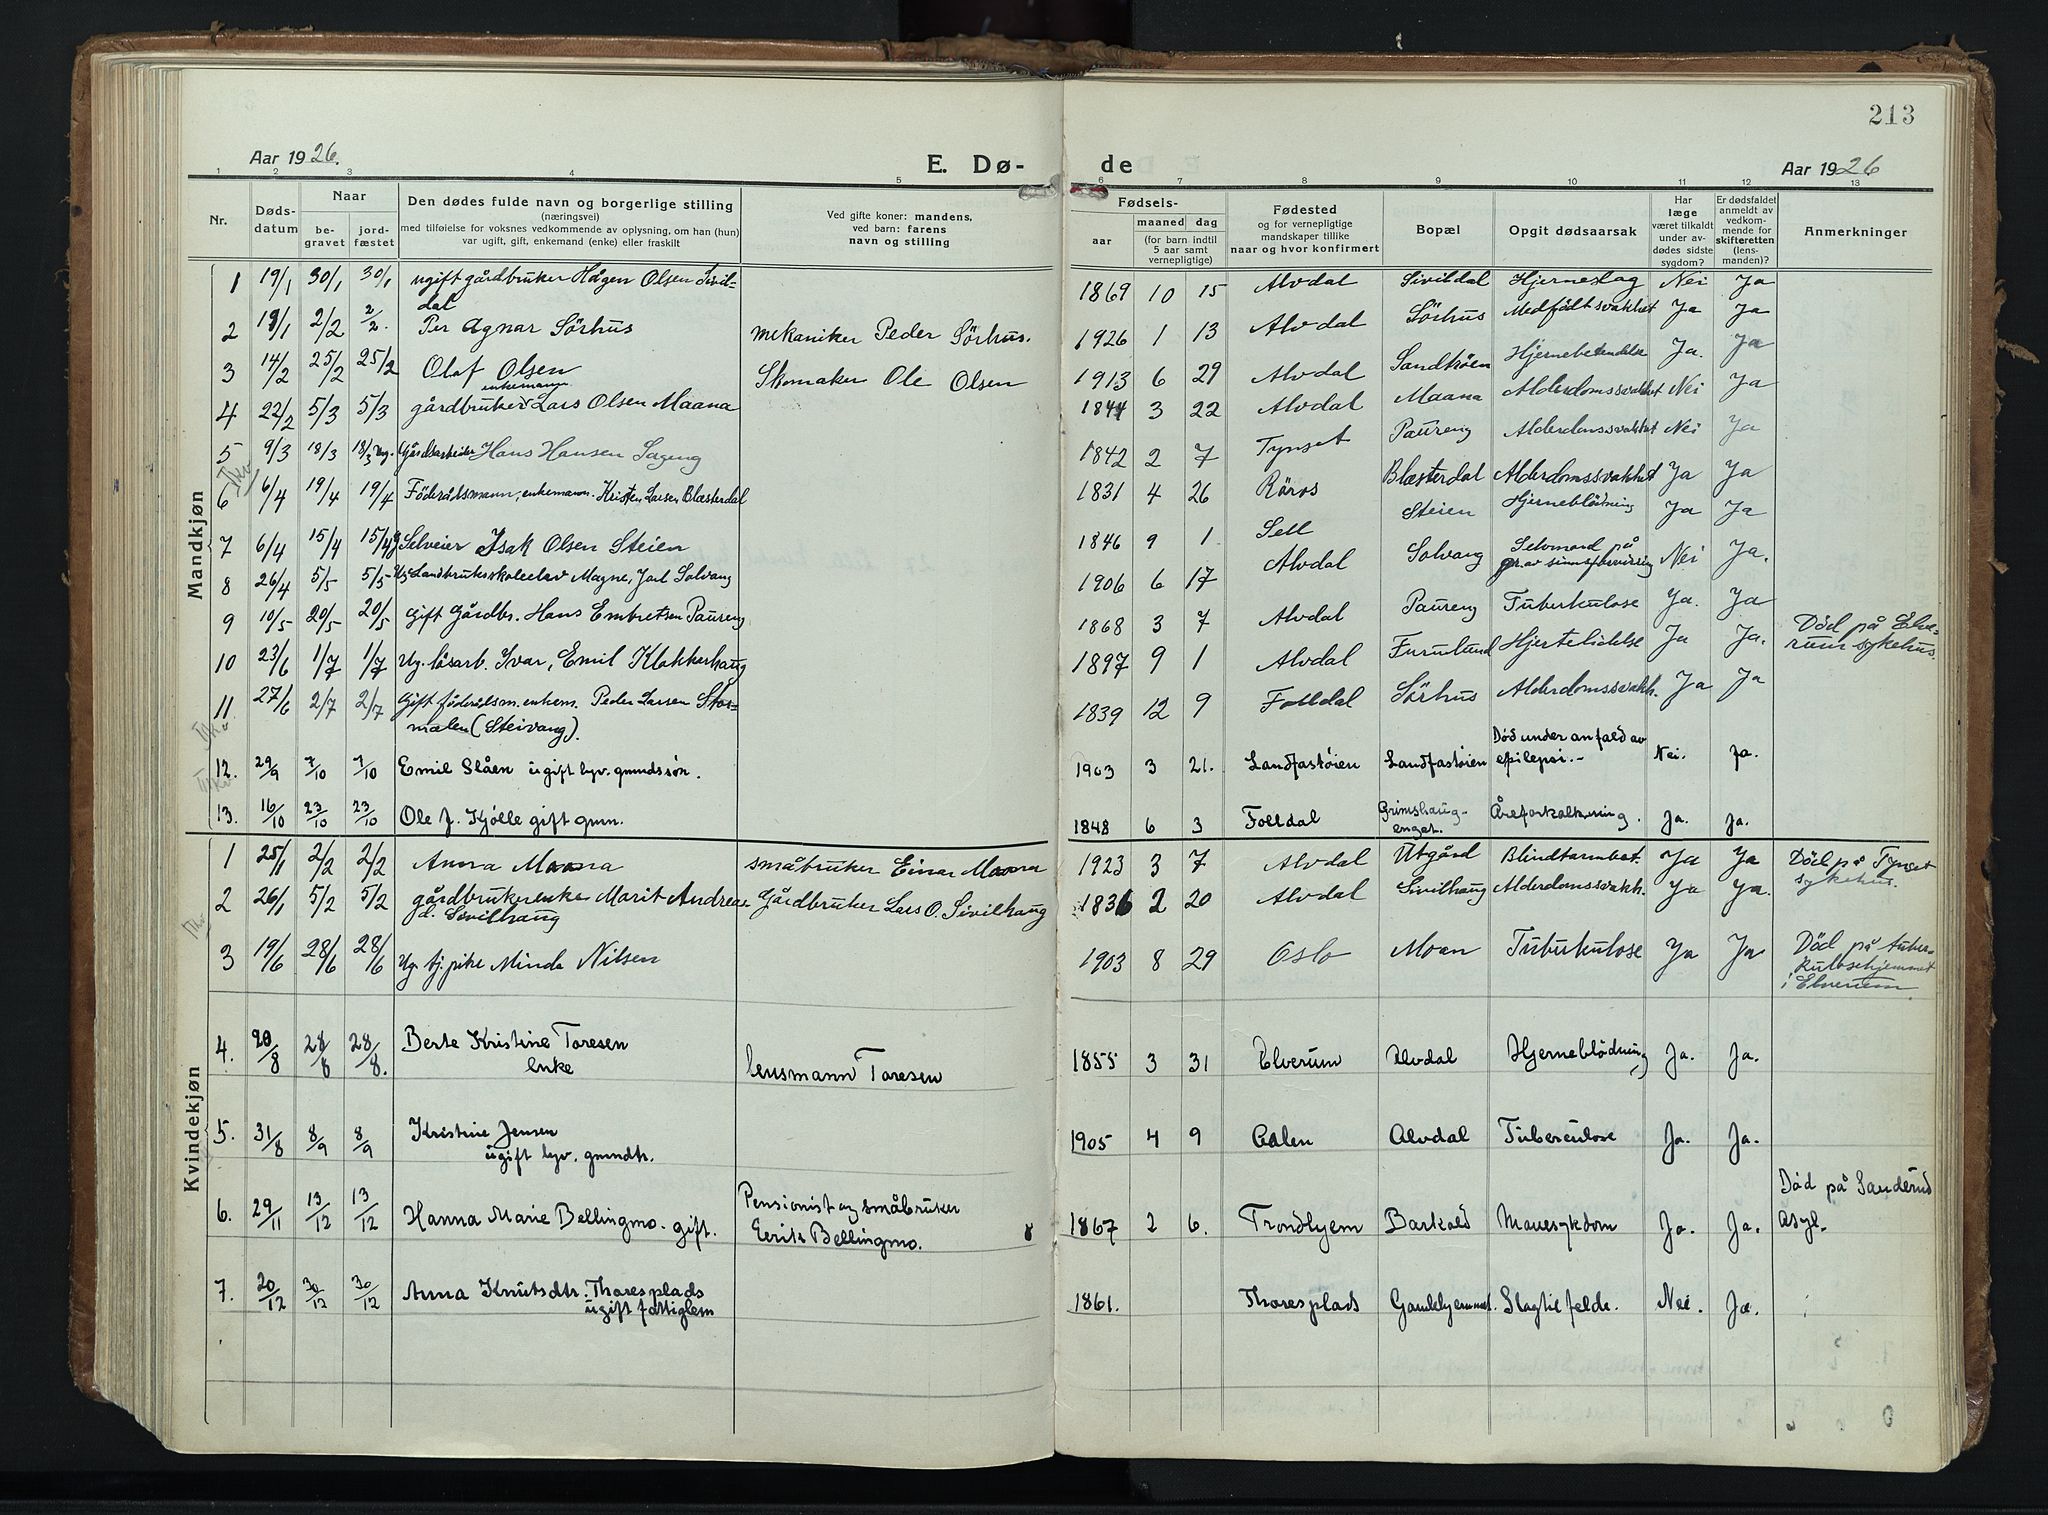 213
Aar 1926. E. Dø- de Aar 1926
1 2 3 4 5 6 7 8 9 10 11 12 13
Nr. Døds-datum Naar be-gravet jord-fæstet Den dødes fulde navn og borgerlige stilling (næringsvei) med tilføielse for voksnes vedkommende av oplysning, om han (hun) var ugift, gift, enkemand (enke) eller fraskilt Ved gifte koner: mandens, ved barn: farens navn og stilling Fødsels- aar maaned dag (for barn indtil 5 aar samt vernepligtige) Fødested og for vernepligtige mandskaper tillike naar og hvor konfirmert Bopæl Opgit dødsaarsak Har læge været tilkaldt under av-dødes sidste sygdom? Er dødsfaldet anmeldt av vedkom-mende for skifteretten (lens-manden)? Anmerkninger
Mandkjøn
1 19/1 30/1 30/1 ugift gårdbruker Hågen Olsen Sivil-dal 1869 10 15 Alvdal Sivildal Hjerneslag Nei Ja
2 19/1 2/2 2/2. Per Agnar Sörhus mekaniker Peder Sörhus. 1926 1 13 Alvdal Sörhus Medfödt svakhet Ja Ja
3 14/2 25/2 25/2 Olaf Olsen Skomaker Ole Olsen 1913 6 29 Alvdal Sandköen Hjernebetendelse Ja. Ja
4 22/2 5/3 5/3 gårdbruker enkemann Lars Olsen Maana 1844 3 22 Alvdal Maana Alderdomssvakhet Nei Ja
5 9/3 18/3 18/3 Ug. Gårdsarbeider Hans Hansen Sageng 1842 2 7 Tynset Paureng Alderdomssvakhet Nei Ja
6 6/4 19/4 19/4 Föderådsmann, enkemann. Kristen Larsen Blæsterdal 1831 4 26 Röros Blæsterdal Alderdomssvakhet Ja Ja
7 6/4 15/4 15/4 g Selveier Isak Olsen Steien 1846 9 1 Sell Steien Hjerneblödning Ja Ja
8 26/4 5/5 5/5 Ug Landbruksskoleelev Magne, Jarl Solvang 1906 6 17 Alvdal Solvang Selvmord på gr. av sinnsforvirring Nei Ja.
9 10/5 20/5 20/5 Gift Gårdbr. Hans Embretsen Paureng 1868 3 7 Alvdal Paureng Tuberkulose Ja. Ja Död på Elve-rum sykehus.
10 23/6 1/7 1/7 Ug. låsarb. Ivar, Emil Klokkerhaug 1897 9 1 Alvdal Furulund Hjertelidelse Ja Ja.
11 27/6 2/7 2/7 Gift föderådsm. enkem. Peder Larsen Stor-moelen (Steivang). 1839 12 9 Folldal Sörhus Alderdomssvakh. Ja Ja
12. 29/9 7/10 7/10 Emil Slåen ugift byv. grundssøn. 1903 3 21. Landfastøien Landfastøien Död under anfald av epilepsi. Nei. Ja.
13. 16/10 23/10 23/10 Ole J. Kjölle gift grm. 1848 6 3 Folldal Grimshaug-enget. Åreforkalkning. Ja. Ja.
Kvindekjøn
1 25/1 2/2 2/2 Anna Moana småbruker Einar Moana 1923 3 7 Alvdal Utgård Blindtarmbet. Ja Ja Död på Tynset sykehus.
2 26/1 5/2 5/2 gårdbrukerenke Marit Andreas d. Sivilhaug Gårdbruker Lars O. Sivilhaug 1836 2 20 Alvdal Sivilhaug Alderdomssvakh. Ja Ja.
3 19/6 28/6 28/6 Ug. tj. pike Minda Nilsen 1903 8 29 Oslo Moan Tuberkulose Ja Ja Död på tuber-kulosehjemmet i Elverum.
4. 20/8 28/8 28/8. Berte Kristine Toresen enke lensmann Toresen 1855 3 31 Elverum Alvdal Hjerneblödning Ja. Ja.
5. 31/8 8/9 8/9 Kristine Jensen ugift byv. grundtr. 1905 4 9 Aalen Alvdal Tuberculose Ja. Ja.
6. 29/11 13/12 13/12 Hanna Marie Bellingmo. gift. Pensionist og småbruker Eerik Bellingmo. 1867 2 6. Trondhjem Barkald Mavesykdom Ja. Ja. Död på Sanderud Asyl.
7. 20/12 30/12 30/12 Anna Knutsdtr. Thoresplads ugift fattiglem 1861. Thoresplads Gamlehjemmet. Slagtilfelde. Nei. Ja.